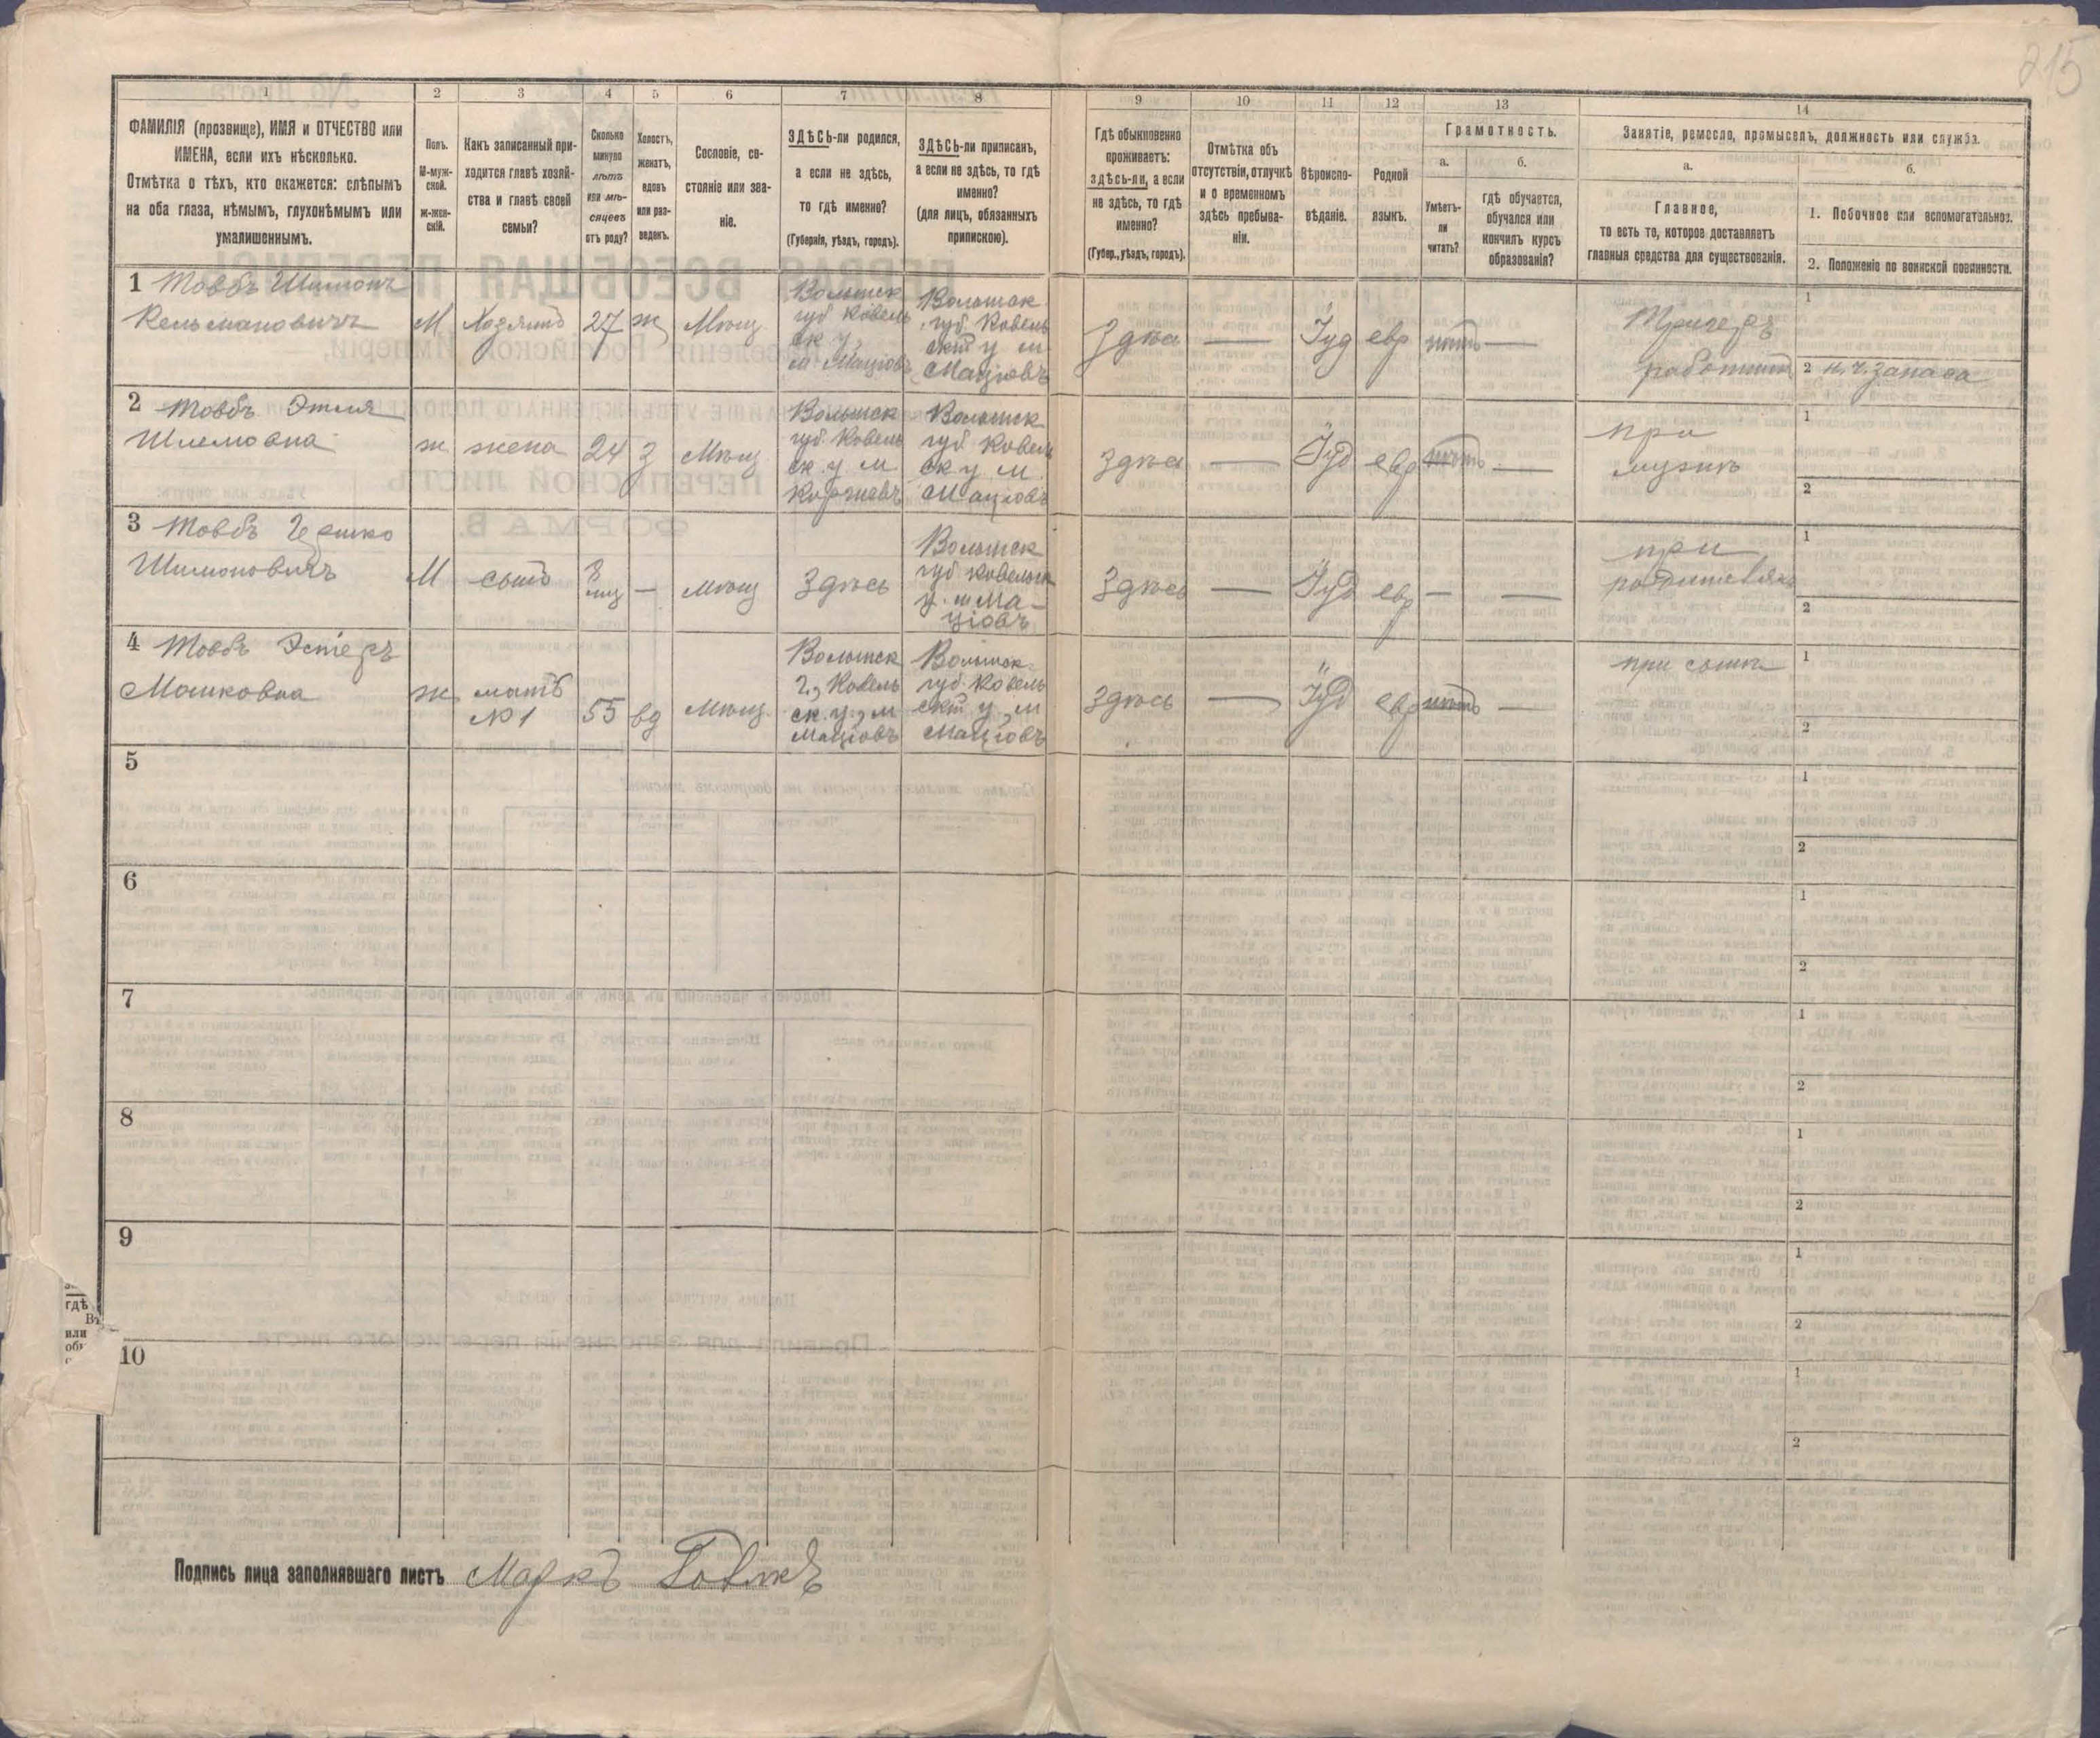 215
1
ФАМИЛІЯ (прозвище), ИМЯ и ОТЧЕСТВО или
ИМЕНА, если ихъ нѣсколько.
Отмѣтка о тѣхъ, кто окажется: слѣпымъ
на оба глаза, нѣмымъ, глухонѣмымъ или
умалишеннымъ.
2
Полъ.
М-муж-
ской.
ж-жен-
скій.
3
Какъ записанный при-
ходится главѣ хозяй-
ства и главѣ своей
семьи?
4
Сколько
минуло
лѣтъ
или мѣ-
сяцевъ
отъ роду?
5
Холостъ,
женатъ,
вдовъ
или раз-
веденъ.
6
Сословіе, со-
стояніе или зва-
ніе.
7
ЗДѢСЬ-ли родился,
а если не здѣсь,
то гдѣ именно?
(Губернія, уѣздъ, городъ).
8
ЗДѢСЬ-ли приписанъ,
а если не здѣсь, то гдѣ
именно?
(для лицъ, обязанныхъ
припискою).
9
Гдѣ обыкновенно
проживаетъ:
здѣсь-ли, а если
не здѣсь, то гдѣ
именно?
(Губер., уѣздъ, городъ).
10
Отмѣтка объ
отсутствіи, отлучкѣ
и о временномъ
здѣсь пребыва-
ніи.
11
Вѣроиспо-
вѣданіе.
12
Родной
языкъ.
13
Грамотность.
а.
Умѣетъ-
ли
читать?
б.
гдѣ обучается,
обучался или
кончилъ курсъ
образованія?
14
Занятіе, ремесло, промыселъ, должность или служба.
а.
Главное,
то есть то, которое доставляетъ
главныя средства для существованія.
б.
1. Побочное или вспомогательное.
2. Положеніе по воинской повинности.
1 Товбъ Шимонъ
Кельмановичъ
М
Хозяинъ
27
ж
Мѣщ.
Волынск
губ Ковель
ск у,
м Маціовъ
Волынск
губ. Ковель
скт у м
Маціовъ
Здѣсь
—
Іуд
евр
нѣтъ
—
работникъ
1
2 н.ч. запаса
2 Товбъ Этля
Шлемовна
ж
жена
24
З
Мѣщ
Волынск
губ. Ковель
ск. у м
Волынск
губ Ковель
ск у м.
Маціовъ
Здѣсь
—
Іуд
евр
нѣтъ
—
при
мужѣ
1
2
3 Товбъ Гершко
Шимоновичъ
М
сынъ
8
мц
—
мѣщ
Здѣсь
Волынск
губ Ковельск
у. м Ма-
ціовъ
Здѣсь
—
Іуд
евр
—
—
при
родителяхъ
1
2
4 Товбъ Эстеръ
Мошковна
ж
мать
№ 1
55
вд
Мѣщ.
Волынск
г., Ковель
ск. у., м
Маціовъ
Волынск.
губ. Ковель
скт у, м
Маціовъ
Здѣсь
—
Іуд
евр
нѣтъ
—
при сынѣ
1
2
5
1
2
6
1
2
7
1
2
8
1
2
9
1
2
10
1
2
Подпись лица заполнявшаго листъ Маркъ